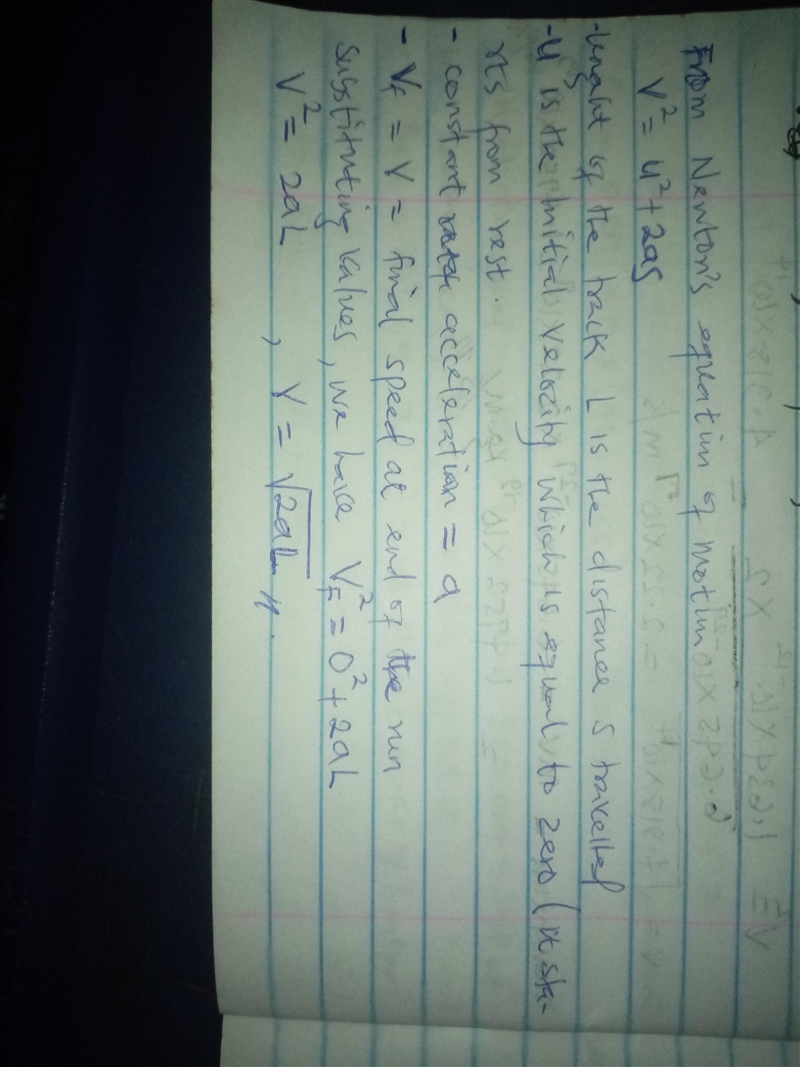 From Newton's equation of motion
V² = u² + 2as
-lenght of the track L is the distance s travelled
-u is the initial velocity which is equal to zero (it sta-
rts from rest.
- constant acceleration = a
- V_f = V = final speed at end of the run
Substituting values, we have V_f² = 0² + 2aL
V² = 2aL , V = √2aL //.